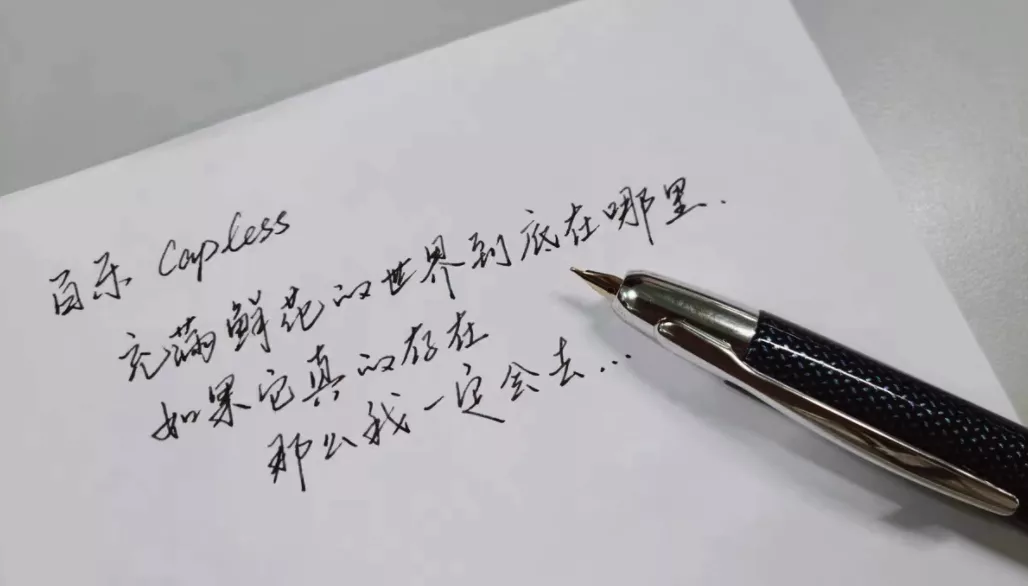 百乐 Capless
充满鲜花的世界到底在哪里.
如果它真的存在
那么我一定会去...